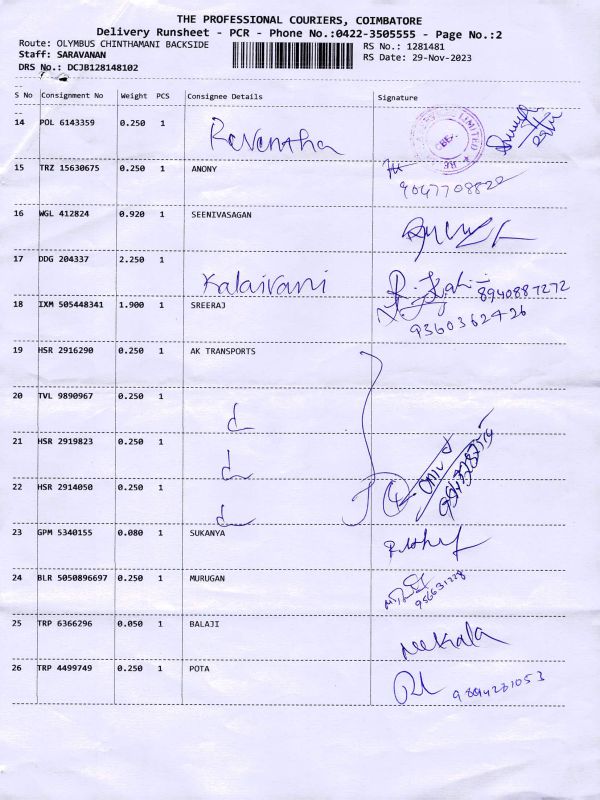 THE PROFESSIONAL COURIERS, COIMBATORE
Delivery Runsheet - PCR - Phone No.:0422-3505555 - Page No.:2
Route: OLYMBUS CHINTHAMANI BACKSIDE
RS No.: 1281481
Staff: SARAVANAN
RS Date: 29-Nov-2023
DRS No.: DCJB128148102
S No Consignment No Weight PCS Consignee Details Signature
14 POL 6143359 0.250 1 Reventha
15 TRZ 15630675 0.250 1 ANONY
9047708822
16 WGL 412824 0.920 1 SEENIVASAGAN
17 DDG 204337 2.250 1 Kalaivani
8940887272
18 IXM 505448341 1.900 1 SREERAJ
9360362426
19 HSR 2916290 0.250 1 AK TRANSPORTS
20 TVL 9890967 0.250 1
21 HSR 2919823 0.250 1
22 HSR 2914050 0.250 1
23 GPM 5340155 0.080 1 SUKANYA
24 BLR 5050896697 0.250 1 MURUGAN
25 TRP 6366296 0.050 1 BALAJI
26 TRP 4499749 0.250 1 POTA